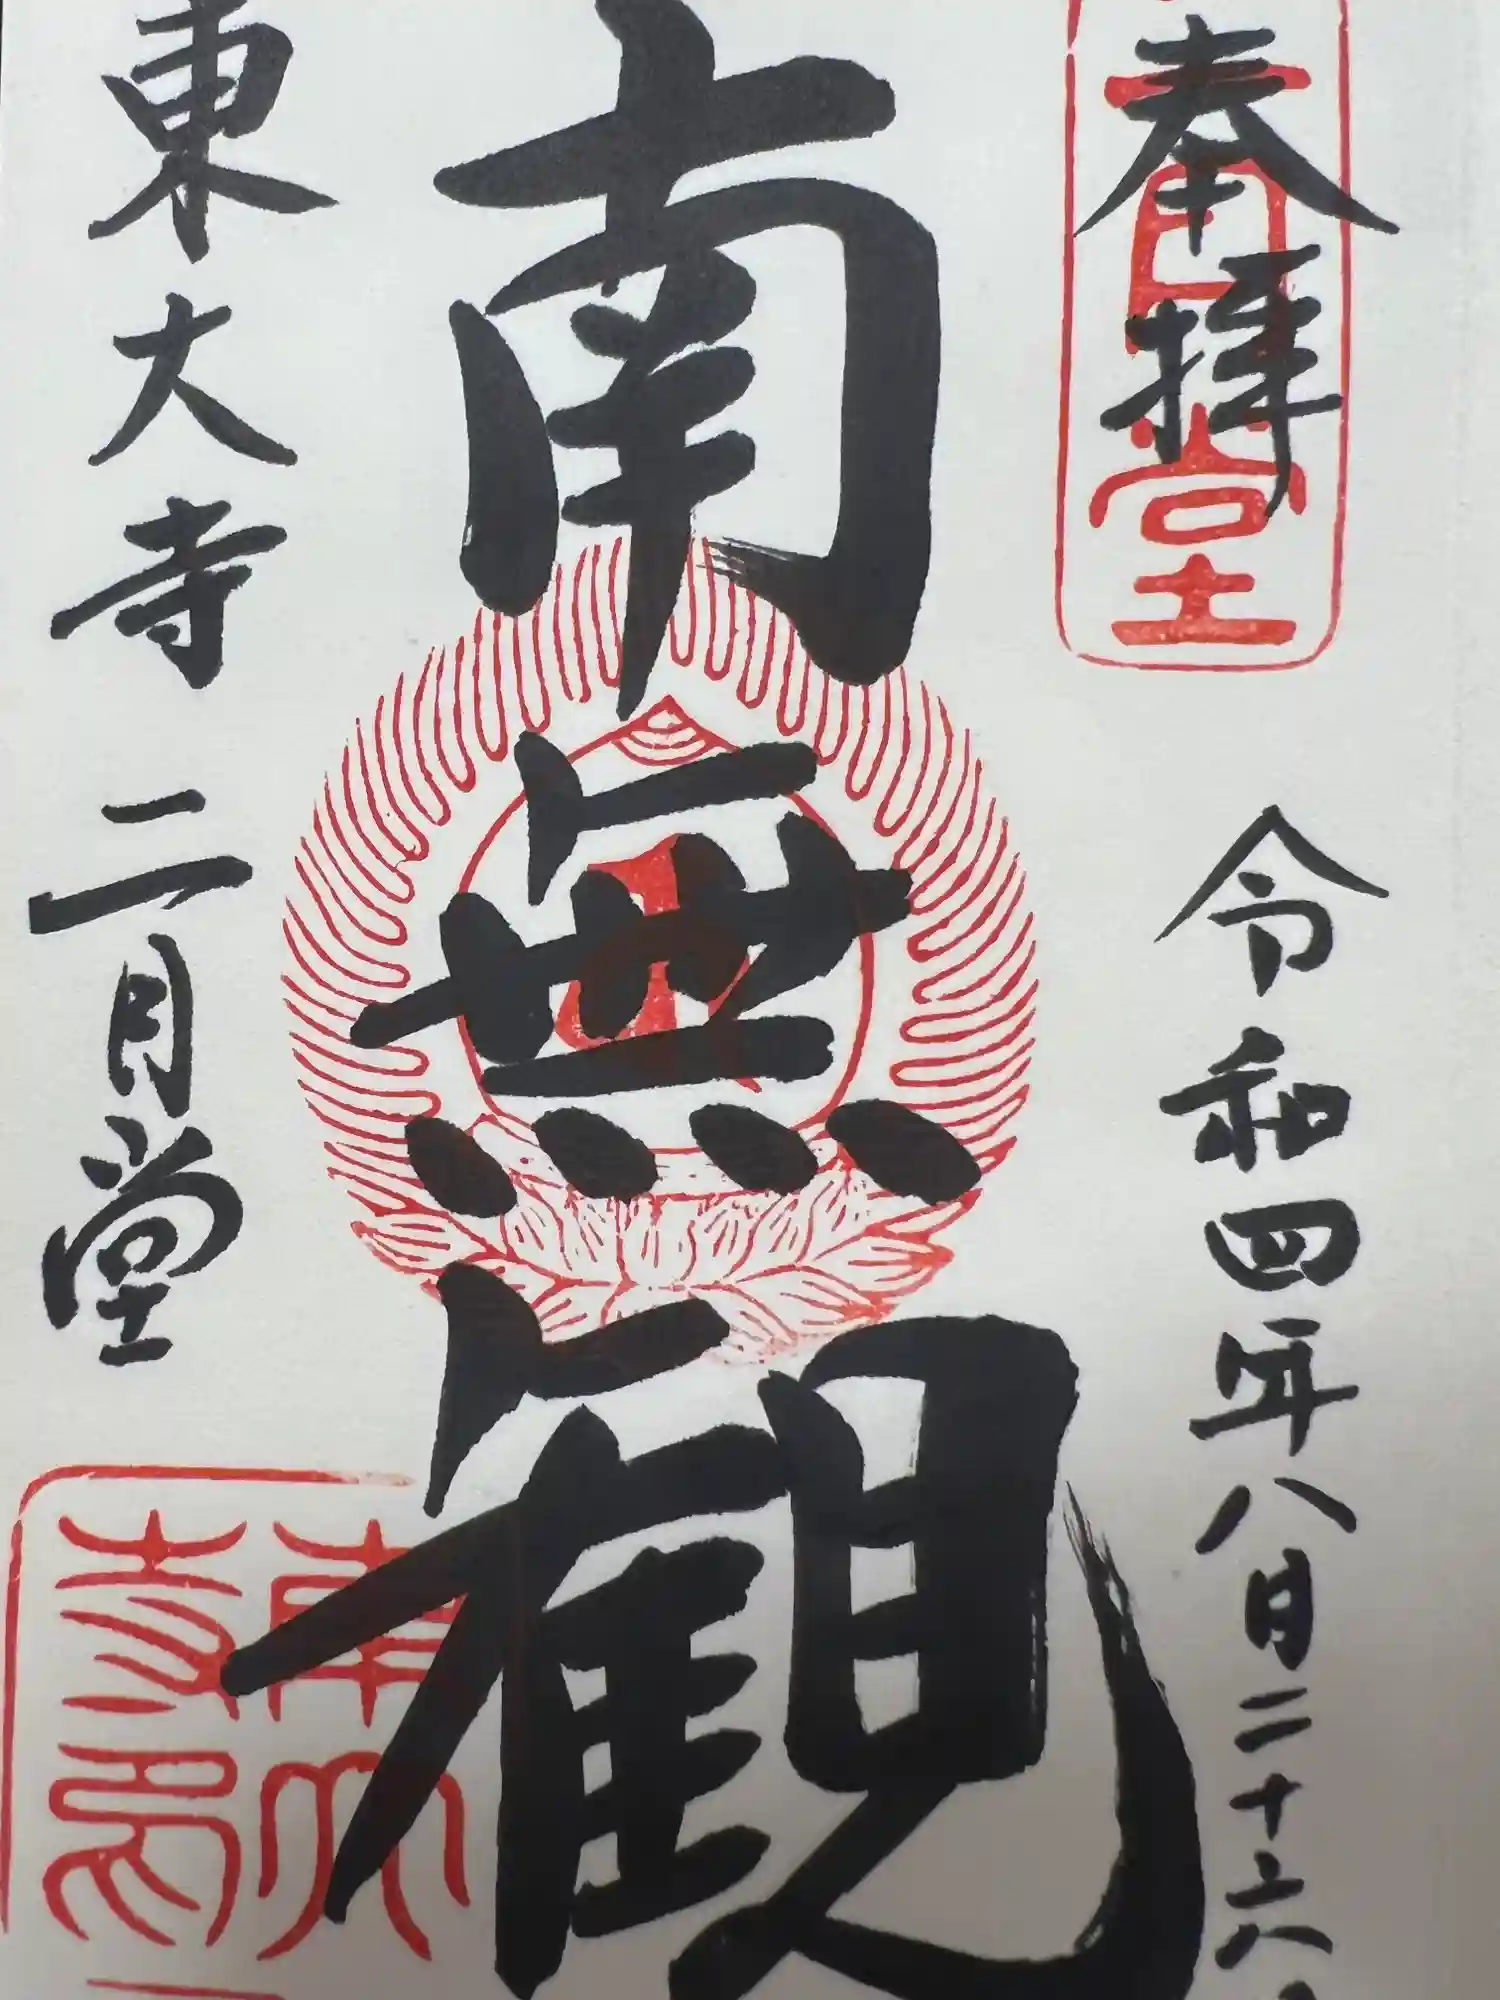 奉拝
二月堂
令和四年八月二十六
南無観
東大寺二月堂